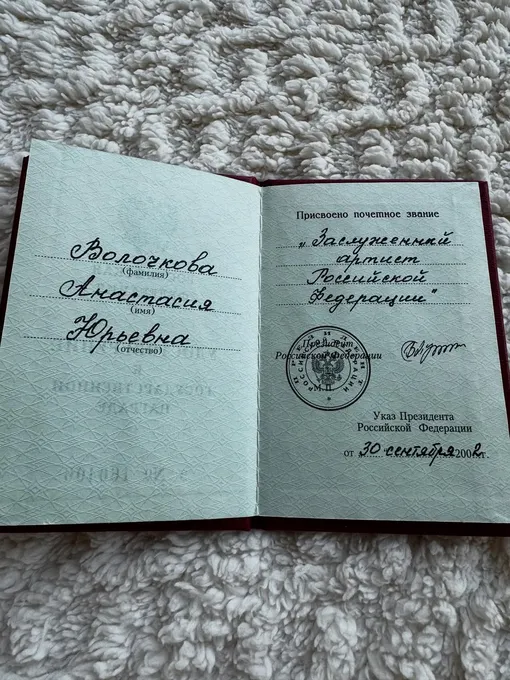 Волочкова
(фамилия)
Анастасия
(имя)
Юрьевна
(отчество)
Присвоено почетное звание
„Заслуженный
артист
Российской
Федерации"
Президент
Российской Федерации
М.П.
Указ Президента
Российской Федерации
от 30 сентября 2002г.